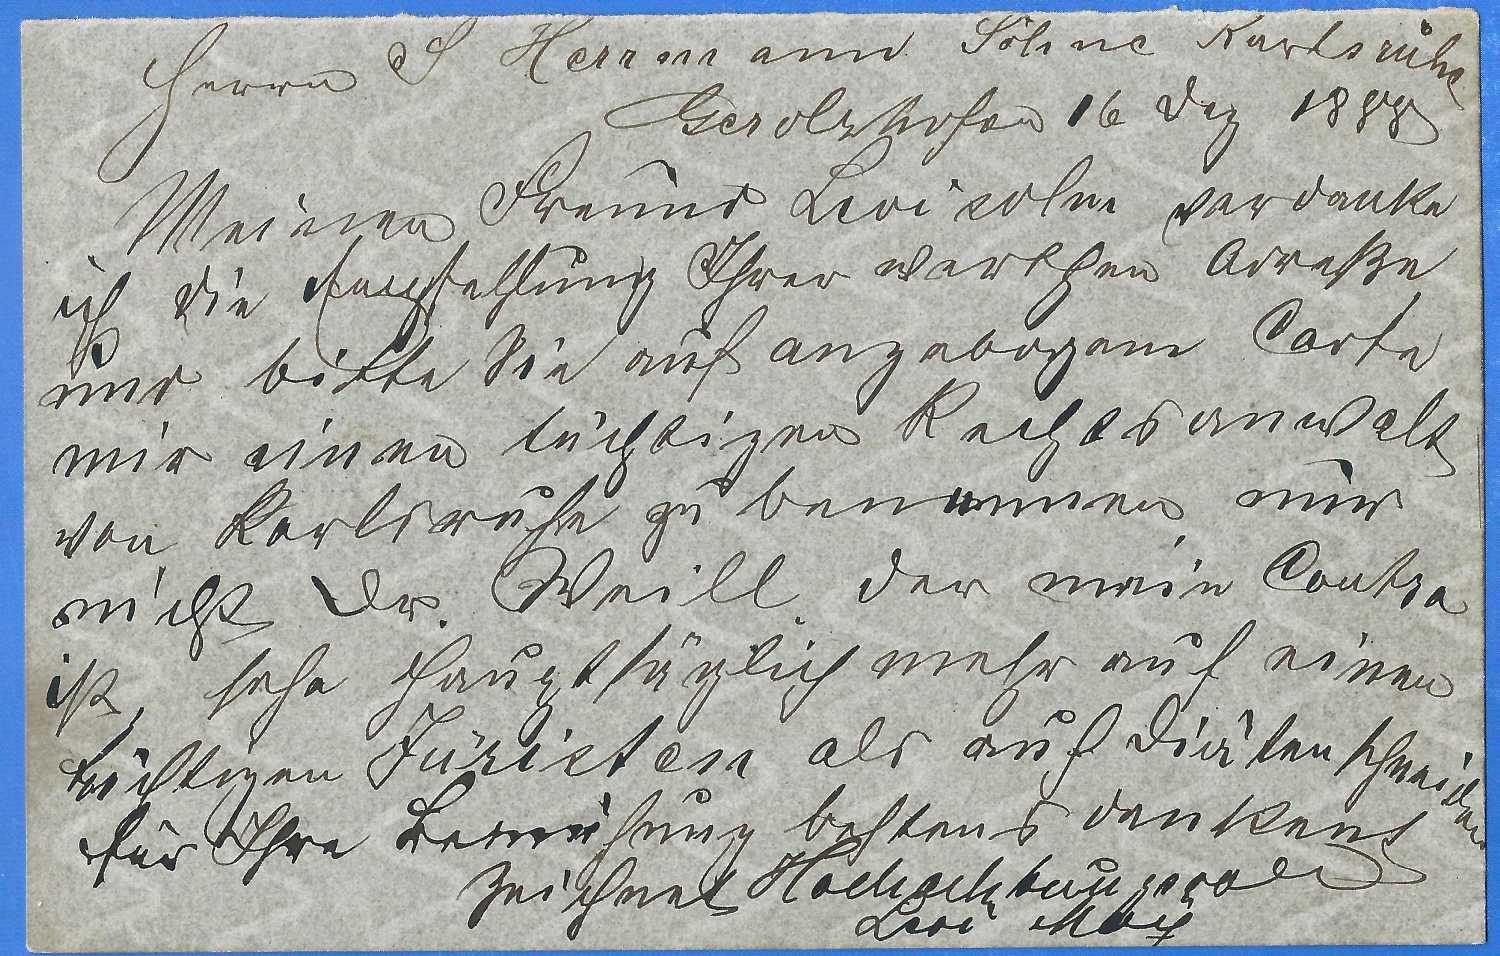 Herrn S Herrmann Söhne Karlsruhe
Gerolzhofen 16 Dez 1888
Meinen Freund Levisohn verdanke
ich die Empfehlung Ihrer werthen Adreße
und bitte Sie auf angebogene Carte
mir einen tüchtigen Rechtsanwalt
von Karlsruhe zu benennen nur
nicht Dr. Weill der mein Contra
ist, sehe hauptsächlich mehr auf einen
tüchtigen Juristen als auf Diätenschneider
für Ihre Bemühung bestens dankend
zeichnet Hochachtungsvoll
Levi Max